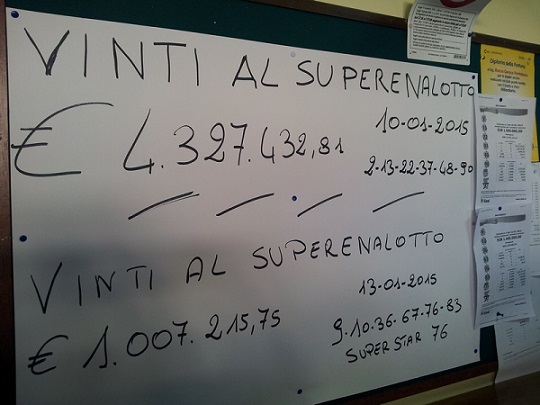 VINTI AL SUPERENALOTTO
€ 4.327.432,81
10-01-2015
2-13-22-37-48-90
VINTI AL SUPERENALOTTO
€ 1.007.215,75
13-01-2015
9-10-36-67-76-83
SUPERSTAR 76